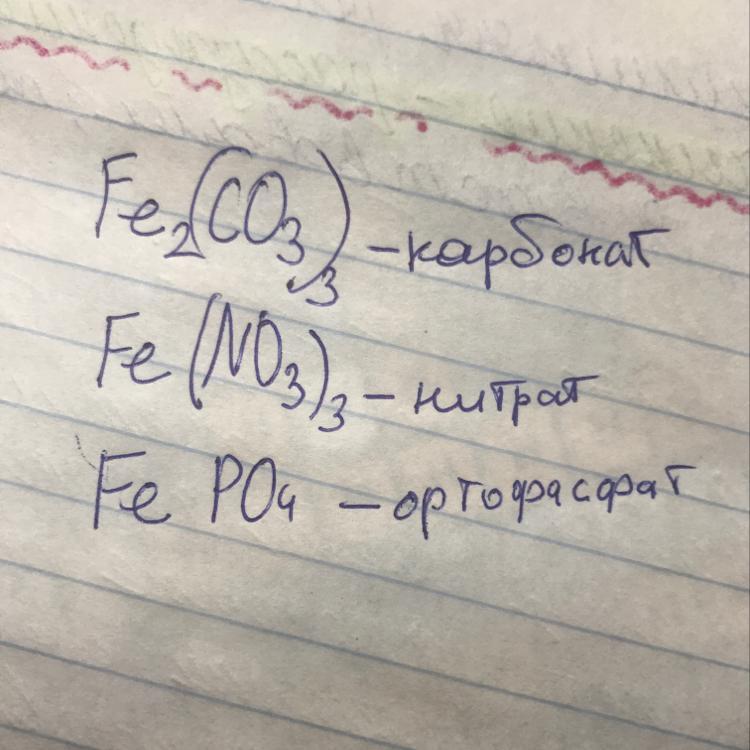 Fe₂(CO₃)₃ – карбонат
Fe(NO₃)₃ – нитрат
Fe PO₄ – ортофасфат